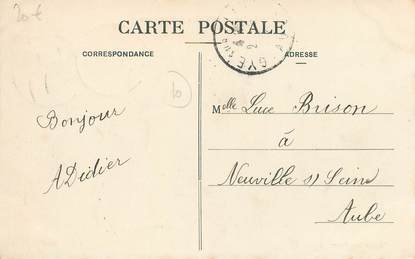 20€
CARTE POSTALE
CORRESPONDANCE
ADRESSE
GYE
2
10
Melle Luce Brison
à
Neuville s/ Seine
Aube
Bonjour
A Didier